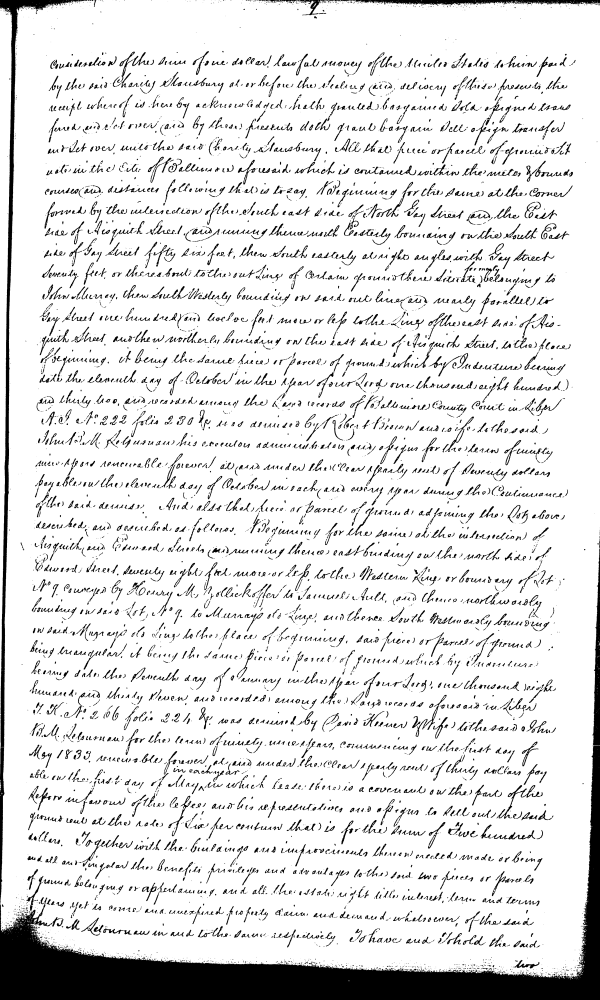 9
Consideration of the sum of one dollar, lawful money of the United States to him paid
by the said Charity Stansbury at or before the sealing and delivery of these presents, the
receipt whereof is hereby acknowledged hath granted bargained sold assigned trans
ferred and set over, and by these presents doth grant bargain sell assign transfer
and set over unto the said Charity Stansbury. All that piece or parcel of ground sit
uate in the City of Baltimore aforesaid which is contained within the metes & bounds
courses and distances following that is to say. Beginning for the same at the corner
formed by the intersection of the South east side of North Gay Street and the East
side of Aisquith Street and running thence north Easterly bounding on the South East
side of Gay Street fifty six feet, then South easterly at right angles with Gay Street
Seventy feet, or thereabout to the out Line of Certain ground there Situate formerly belonging to
John Murray, then South Westerly bounding on said out line and nearly parallel to
Gay Street one hundred and twelve feet more or less to the Line of the east side of Ais-
quith Street, and then northerly bounding on the east side of Aisquith Street, to the place
of beginning. it being the same piece or parcel of ground which by Indenture bearing
date the eleventh day of October in the year of our Lord one thousand eight hundred
and thirty two, and recorded among the Land records of Baltimore County Court in Liber
No. 222 folio 230 &c was demised by Robert and wife to the said
John B. M. his executors administrators and assigns for the term of ninety
nine years renewable forever, at and under the clear yearly rent of Seventy dollars
payable on the eleventh day of October in each and every year during the Continuance
of the said demise. And also that piece or parcel of ground adjoining the Lot above
described, and described as follows. Beginning for the same at the intersection of
Aisquith and Edward Streets and running thence east binding on the north side of
Edward Street, seventy eight feet more or less to the Western Line or boundary of Lot
No. 9 conveyed by Henry M. Zollickoffer to Samuel Ault, and thence northwardly
bounding on said Lot, No. 9 to Murray's old Line, and thence South Westwardly bounding
on said Murray's old Line to the place of beginning, said piece or parcel of ground
being triangular. it being the same piece or parcel of ground which by Indenture
bearing date the Seventh day of January in the year of our Lord, one thousand eight
hundred and thirty Seven, and recorded among the Land records aforesaid in Liber
T. K. No. 266 folio 224 &c was demised by David Keener & Wife to the said John
B. M. for the term of ninety nine years, commencing on the first day of
May 1833, renewable forever, at and under the clear yearly rent of thirty dollars pay
able on the first day of May, in each year in which lease there is a covenant on the part of the
Lessors in favour of the lessee, and his representatives and assigns to sell out the said
ground rent at the rate of Six per centum that is for the sum of Five hundred
dollars. Together with the buildings and improvements thereon erected made or being
and all and Singular the benefits privileges and advantages to the said two pieces or parcels
of ground belonging or appertaining, and all the estate right title interest, term and terms
of years yet to come and unexpired property claim and demand whatsoever, of the said
John B. M. in and to the same respectively. To have and To hold the said
two